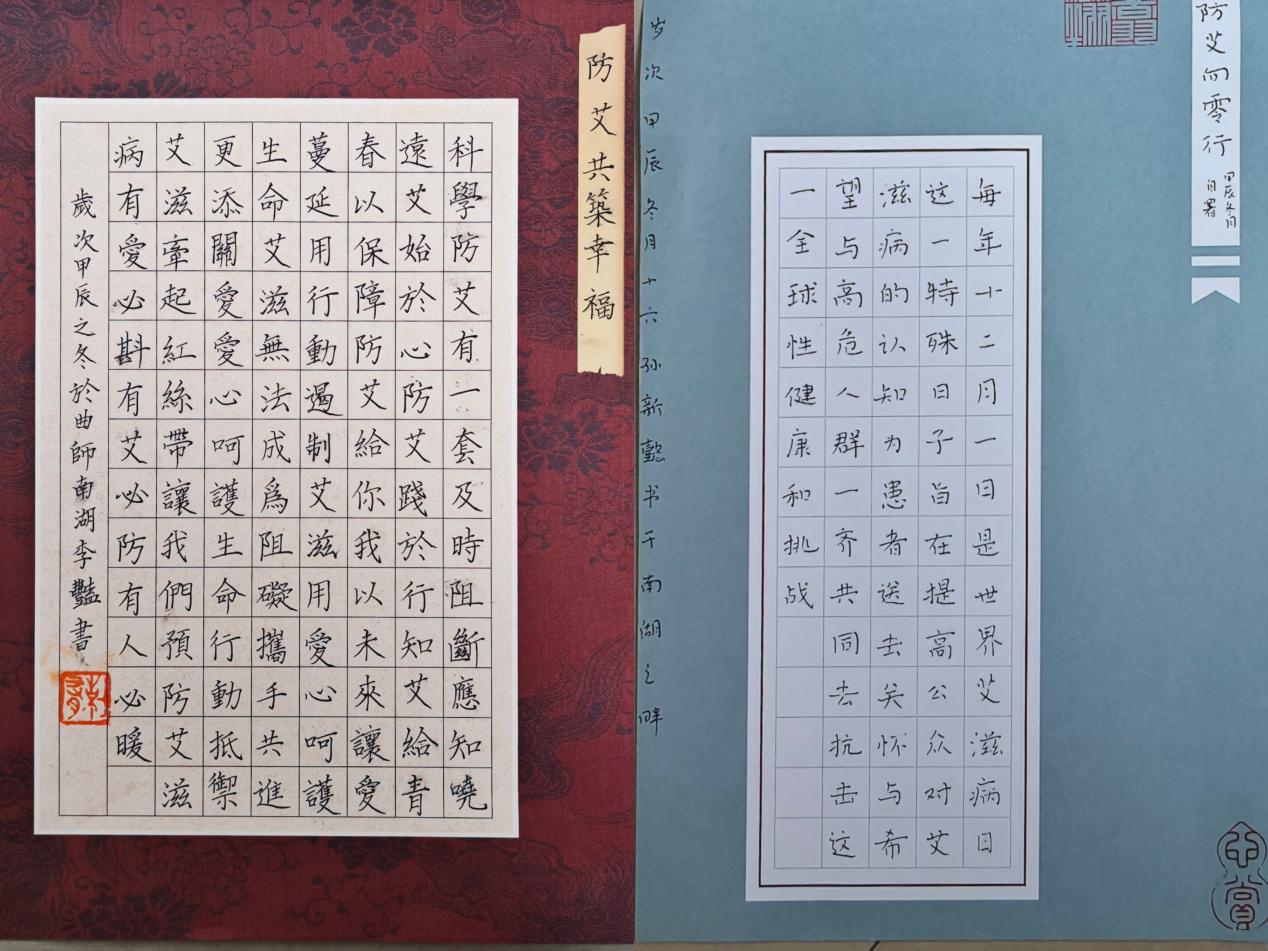 防艾共築幸福
科學防艾有一套及時阻斷應知嘵
遠艾始於心防艾踐於行知艾給青
春以保障防艾給你我以未來讓愛
蔓延用行動遏制艾滋用愛心呵護
生命艾滋無法成爲阻礙攜手共進
更添關愛愛心呵護生命行動抵禦
艾滋牽起紅絲帶讓我們預防艾滋
病有愛必斟有艾必防有人必暖
歲次甲辰之冬於曲師南湖李豔書
防艾向零行
甲辰冬月
自署
每年十二月一日是世界艾滋病日
这一特殊日子旨在提高公众对艾
滋病的认知为患者送去关怀与希
望与高危人群一齐共同去抗击这
一全球性健康和挑战
岁次甲辰冬月十六孙新懿书于南湖之畔